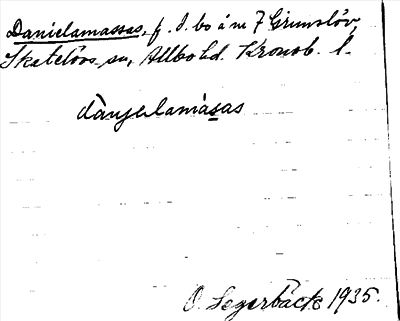 Danielamassas, f. d. bo å nr 7 Grimslöv,
Skatelövs sn, Allbo hd. Kronob. l.
dànjelamàsas
O. Segerbäck 1935.